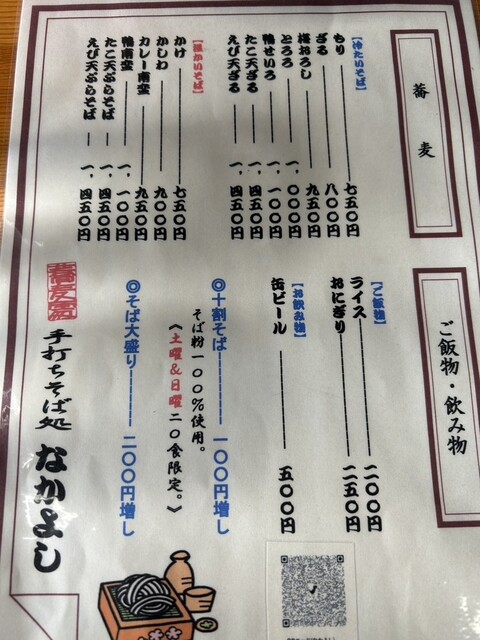 蕎麦
【冷たいそば】
もり 七五〇円
ざる 八〇〇円
桜おろし 九五〇円
とろろ 一、〇〇〇円
鴨せいろ 一、一〇〇円
たこ天ざる 一、四五〇円
えび天ざる 一、四五〇円
【温かいそば】
かけ 七五〇円
かしわ 九〇〇円
カレー南蛮 九五〇円
鴨南蛮 一、一〇〇円
たこ天ぷらそば 一、四五〇円
えび天ぷらそば 一、四五〇円
ご飯物・飲み物
【ご飯物】
ライス 二〇〇円
おにぎり 二五〇円
【お飲み物】
缶ビール 五〇〇円
◎十割そば 一〇〇円増し
そば粉一〇〇％使用。
《土曜&日曜二〇食限定。》
◎そば大盛り 二〇〇円増し
手打ちそば処 なかよし